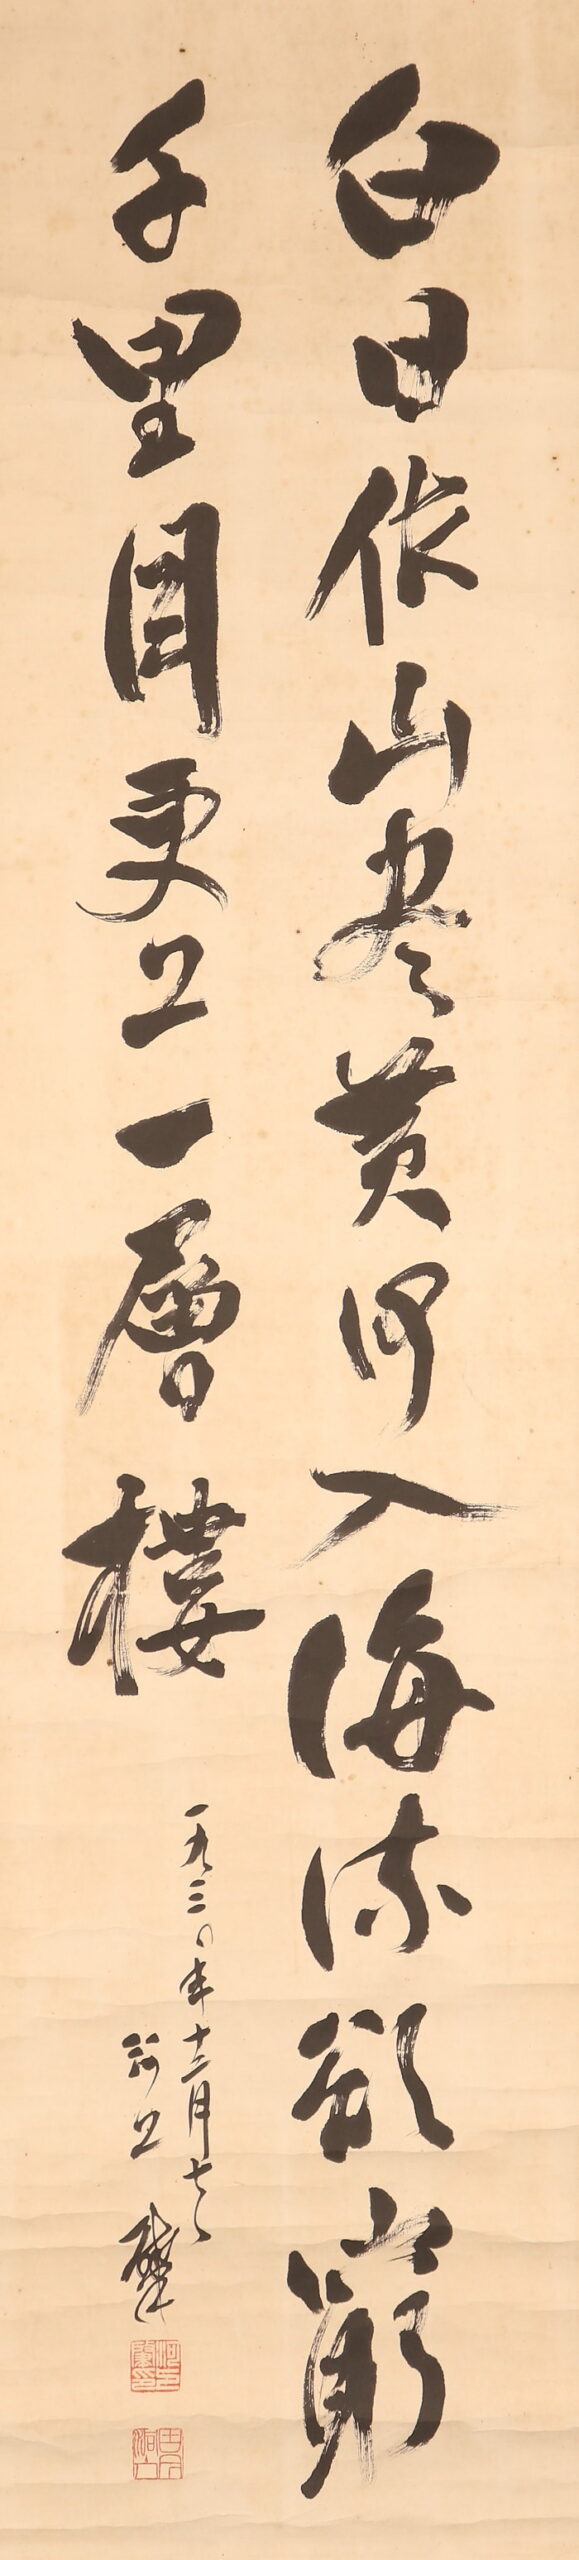 白日依山尽黄河入海流欲窮
千里目更上一層樓
一九三〇年十二月七日